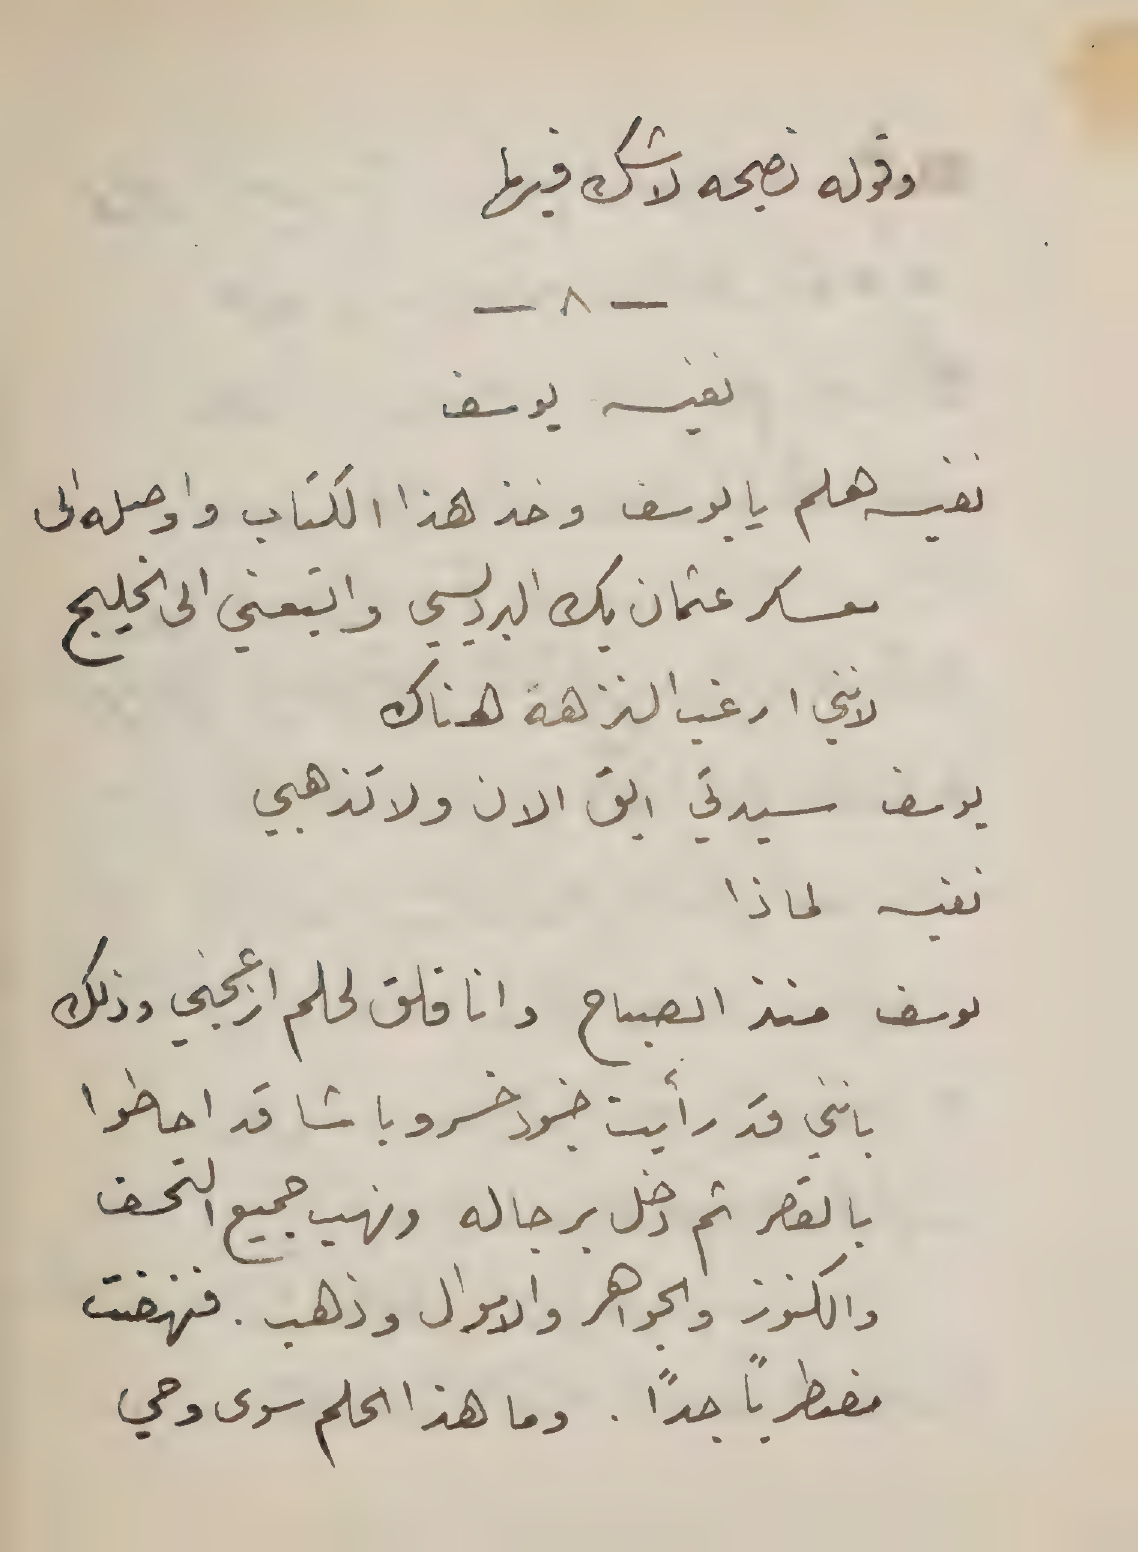 وقوله نصيحه لاشك فيها
— ٨ —
نفيسه يوسف
نفيسه هلم يا يوسف وخذ هذا الكتاب واوصله الى
معسكر عثمان بك البرديسي واتبعني الى الخليج
لانني ارغب النزهة هناك
يوسف سيدتي ابق الان ولا تذهبي
نفيسه لماذا
يوسف منذ الصباح وانا قلق لحلم ازعجني وذلك
بانني قد رأيت جنود خسرو باشا قد احاطوا
بالقصر ثم دخل برجاله ونهب جميع التحف
والكنوز والجواهر والاموال وذهب . فنهضت
مضطرباً جداً . وما هذا الحلم سوى وحي